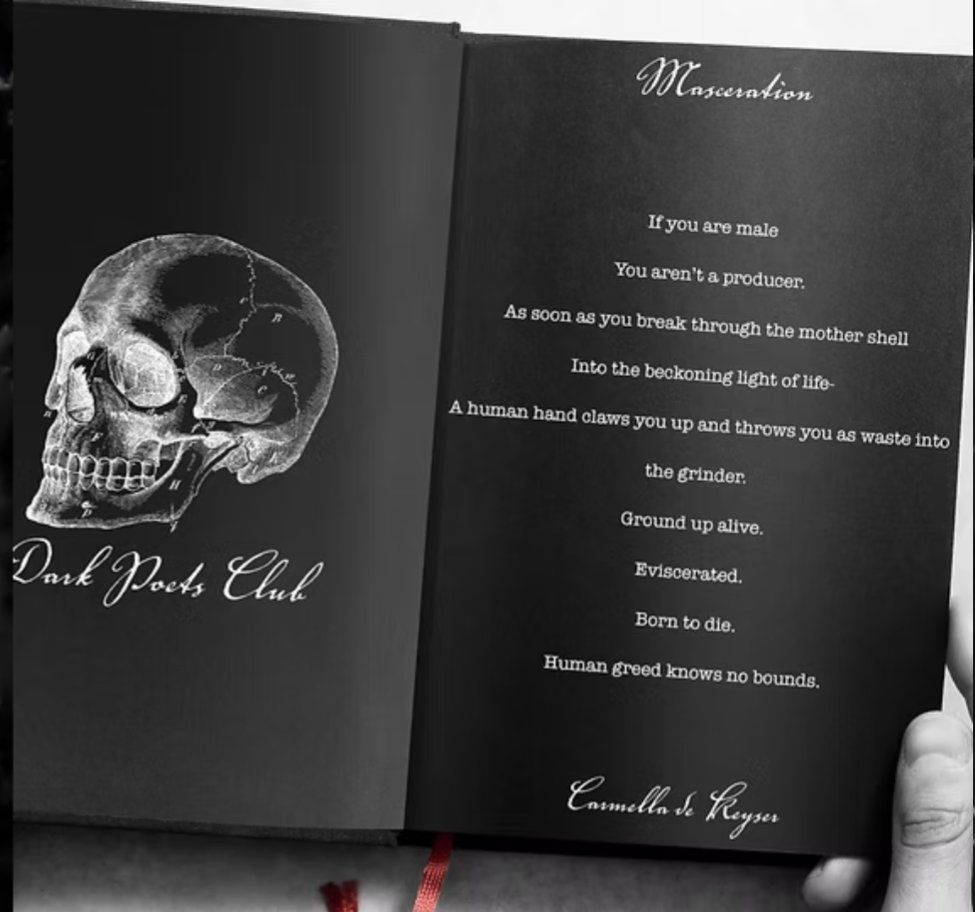 Dark Poets Club
Masceration
If you are male
You aren't a producer.
As soon as you break through the mother shell
Into the beckoning light of life-
A human hand claws you up and throws you as waste into
the grinder.
Ground up alive.
Eviscerated.
Born to die.
Human greed knows no bounds.
Carmella de Keyser